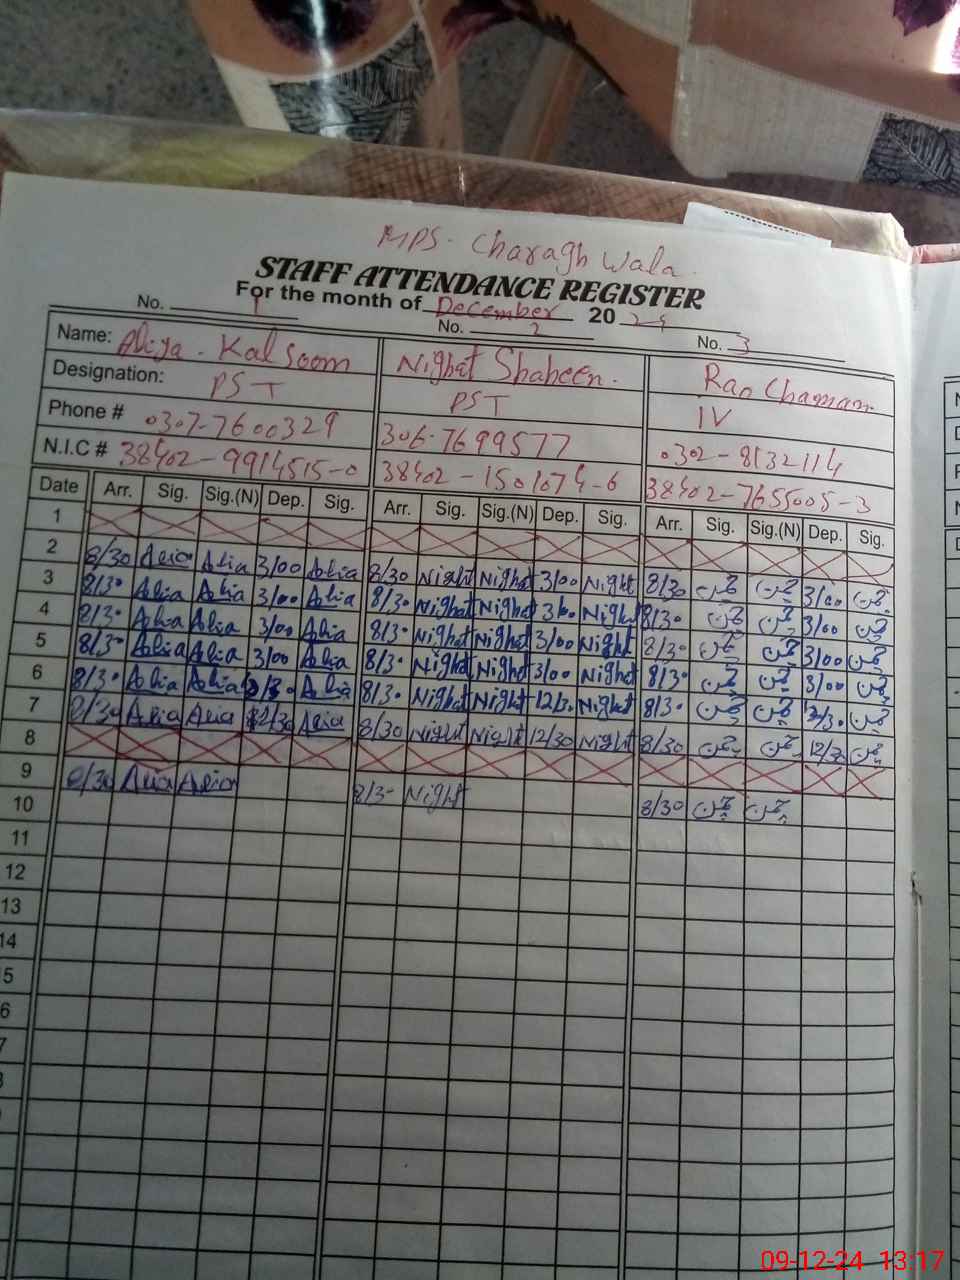 MPS. Charagh Wala
STAFF ATTENDANCE REGISTER
For the month of December 2024
No. 1 No. 2 No. 3
Name: Aliya. Kalsoom Nighat Shaheen. Rao Chaman
Designation: PST PST IV
Phone # 0307-7600329 306-7699577 0302-8132114
N.I.C # 38402-9914515-0 38402-1501074-6 38402-7655005-3
Date Arr. Sig. Sig.(N) Dep. Sig. Arr. Sig. Sig.(N) Dep. Sig. Arr. Sig. Sig.(N) Dep. Sig.
1
2 8/30 Alia Alia 3/00 Alia 8/30 Nighat Nighat 3/00 Nighat 8/30 چمن چمن 3/00 چمن
3 8/30 Alia Alia 3/00 Alia 8/30 Nighat Nighat 3/00 Nighat 8/30 چمن چمن 3/00 چمن
4 8/30 Alia Alia 3/00 Alia 8/30 Nighat Nighat 3/00 Nighat 8/30 چمن چمن 3/00 چمن
5 8/30 Alia Alia 3/00 Alia 8/30 Nighat Nighat 3/00 Nighat 8/30 چمن چمن 3/00 چمن
6 8/30 Alia Alia Alia 8/30 Nighat Nighat 12/30 Nighat 8/30 چمن چمن 12/30 چمن
7 8/30 Alia Alia 12/30 Alia 8/30 Nighat Nighat 12/30 Nighat 8/30 چمن چمن 12/30 چمن
8
9 8/30 Alia Alia 8/30 Nighat 8/30 چمن چمن
10
11
12
13
14
5
6
7
09-12-24 13:17